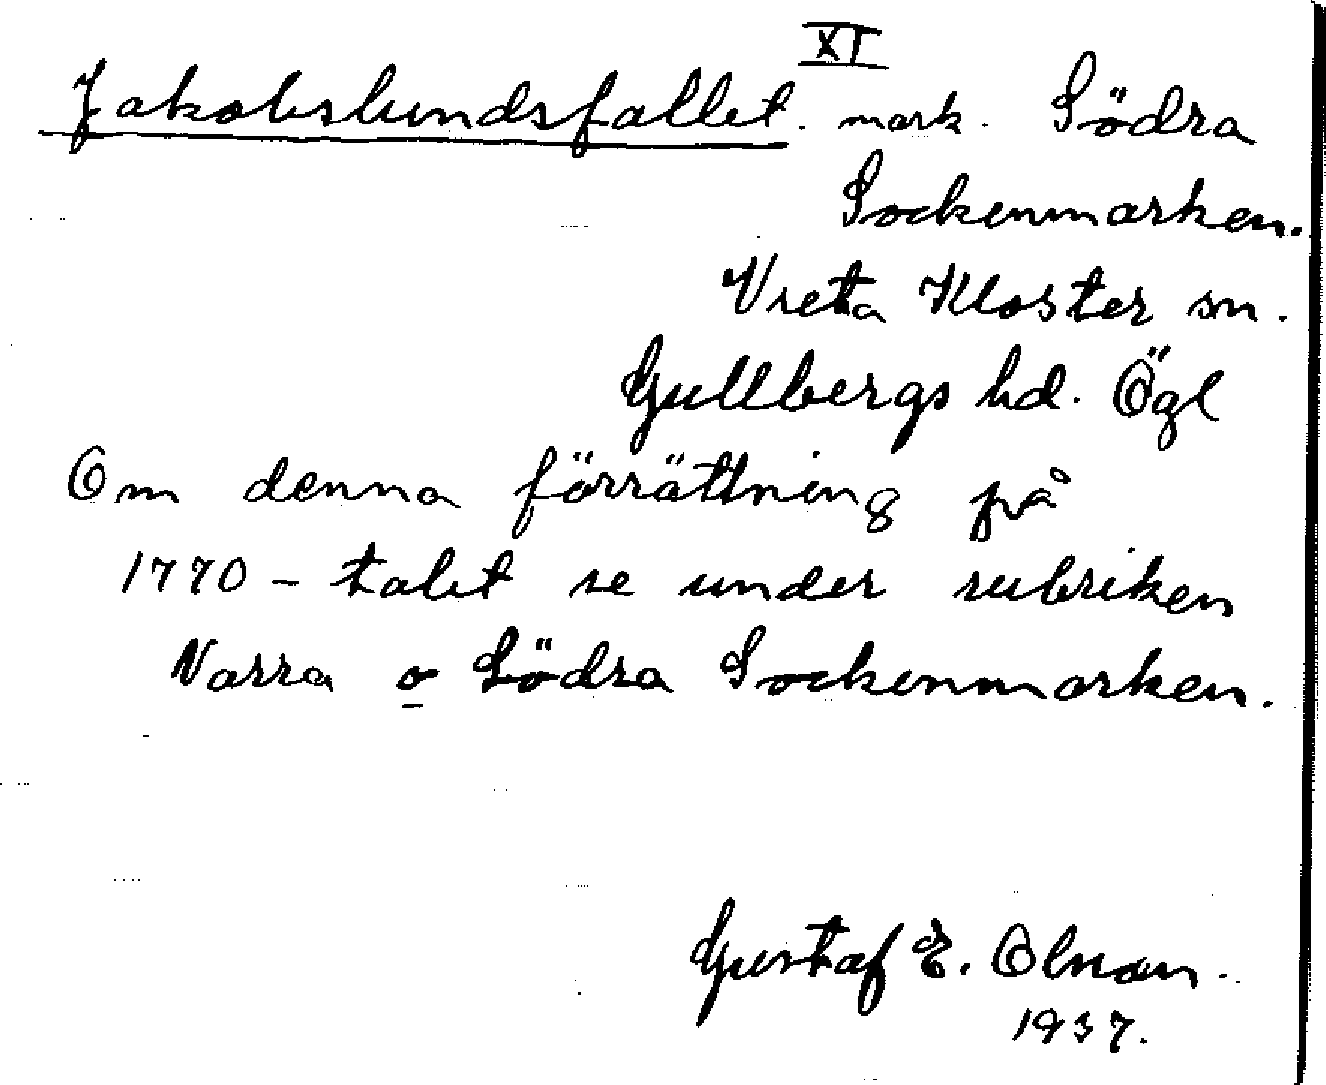 XI
Jakobslundsfallet. mark. Södra
Sockenmarken.
Vreta Kloster sn.
Gullbergs hd. Ögl
Om denna förrättning på
1770-talet se under rubriken
Varra o Södra Sockenmarken.
Gustaf E. Olnan.
1937.